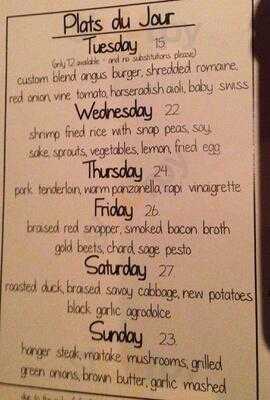 Plats du Jour
Tuesday 15
(only 12 available - and no substitutions please)
custom blend angus burger, shredded romaine,
red onion, vine tomato, horseradish aioli, baby swiss
Wednesday 22
shrimp fried rice with snap peas, soy,
sake, sprouts, vegetables, lemon, fried egg
Thursday 24
pork tenderloin, warm panzanella, rapi vinaigrette
Friday 26
braised red snapper, smoked bacon broth
gold beets, chard, sage pesto
Saturday 27
roasted duck, braised savoy cabbage, new potatoes
black garlic agrodolce
Sunday 23
hanger steak, maitake mushrooms, grilled
green onions, brown butter, garlic mashed